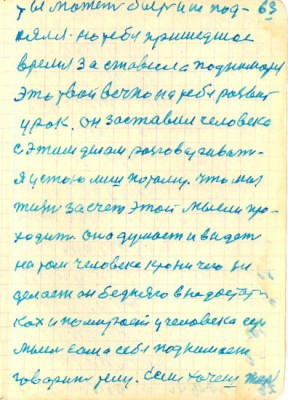 ты может был и не под- 63
нялся. но тебя пришедшее
время заставило подниматся
Это твой вечно на тебя развит
урок. он заставил человека
с этим делом разговаривать.
я устою лиш потому. что мы
живём за счет этой мысли про-
ходит. оно думает и видит
на том человека кроме чего
делает он бедняго в недостат-
ках и у человека
мысли сама себя поднимает
говорит ему. Если хочеш